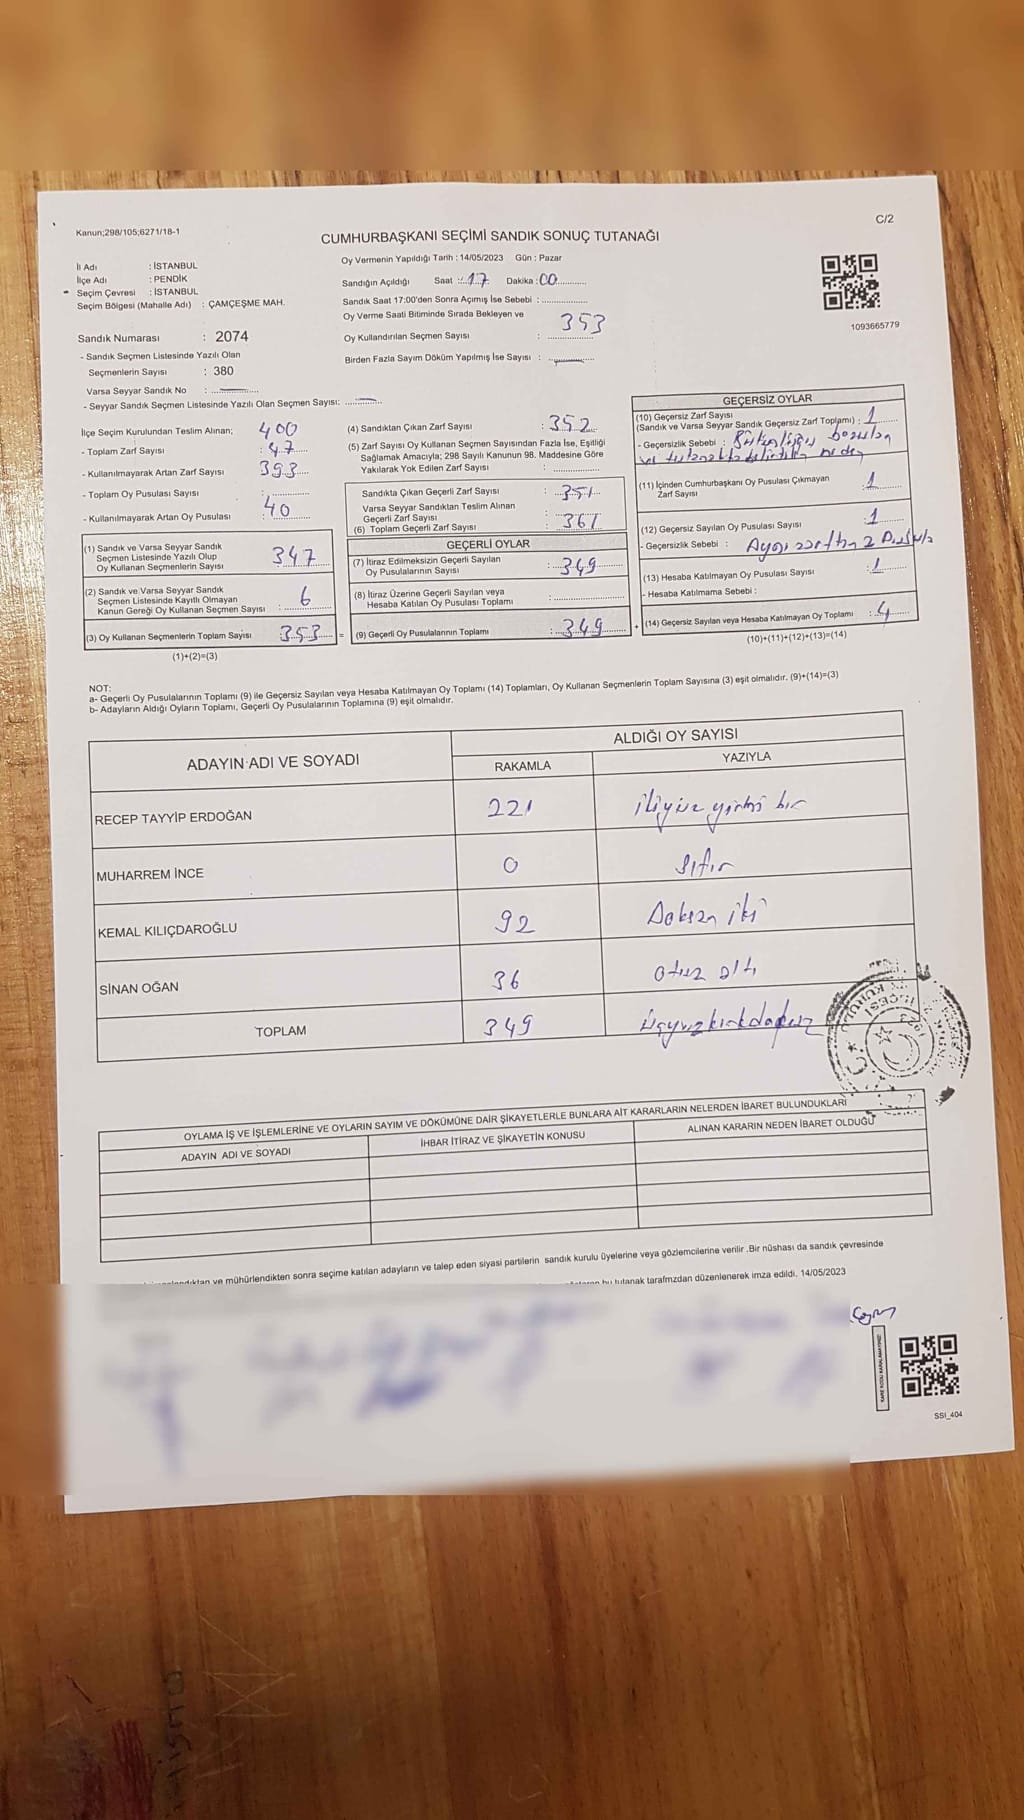 Kanun;298/105;6271/18-1
C/2
CUMHURBAŞKANI SEÇİMİ SANDIK SONUÇ TUTANAĞI
İl Adı : İSTANBUL
İlçe Adı : PENDİK
Seçim Çevresi : İSTANBUL
Seçim Bölgesi (Mahalle Adı) : ÇAMÇEŞME MAH.
Oy Vermenin Yapıldığı Tarih : 14/05/2023 Gün : Pazar
Sandığın Açıldığı Saat : 17 Dakika : 00
Sandık Saat 17:00'den Sonra Açımış İse Sebebi :
Oy Verme Saati Bitiminde Sırada Bekleyen ve
Oy Kullandırılan Seçmen Sayısı : 353
Birden Fazla Sayım Döküm Yapılmış İse Sayısı : —
1093665779
Sandık Numarası : 2074
- Sandık Seçmen Listesinde Yazılı Olan
Seçmenlerin Sayısı : 380
Varsa Seyyar Sandık No : —
- Seyyar Sandık Seçmen Listesinde Yazılı Olan Seçmen Sayısı: —
İlçe Seçim Kurulundan Teslim Alınan; 400
- Toplam Zarf Sayısı : 47
- Kullanılmayarak Artan Zarf Sayısı 393
- Toplam Oy Pusulası Sayısı :
- Kullanılmayarak Artan Oy Pusulası : 40
(1) Sandık ve Varsa Seyyar Sandık
Seçmen Listesinde Yazılı Olup
Oy Kullanan Seçmenlerin Sayısı 347
(2) Sandık ve Varsa Seyyar Sandık
Seçmen Listesinde Kayıtlı Olmayan
Kanun Gereği Oy Kullanan Seçmen Sayısı : 6
(3) Oy Kullanan Seçmenlerin Toplam Sayısı 353 =
(1)+(2)=(3)
(4) Sandıktan Çıkan Zarf Sayısı : 352
(5) Zarf Sayısı Oy Kullanan Seçmen Sayısından Fazla İse, Eşitliği
Sağlamak Amacıyla; 298 Sayılı Kanunun 98. Maddesine Göre
Yakılarak Yok Edilen Zarf Sayısı :
Sandıkta Çıkan Geçerli Zarf Sayısı : 351
Varsa Seyyar Sandıktan Teslim Alınan
Geçerli Zarf Sayısı :
(6) Toplam Geçerli Zarf Sayısı : 361
GEÇERLİ OYLAR
(7) İtiraz Edilmeksizin Geçerli Sayılan
Oy Pusulalarının Sayısı : 349
(8) İtiraz Üzerine Geçerli Sayılan veya
Hesaba Katılan Oy Pusulası Toplamı :
(9) Geçerli Oy Pusulalarının Toplamı : 349 +
GEÇERSİZ OYLAR
(10) Geçersiz Zarf Sayısı
(Sandık ve Varsa Seyyar Sandık Geçersiz Zarf Toplamı) : 1
- Geçersizlik Sebebi : Bütünlüğü bozulan
ve tutanakta belirtilen neden
(11) İçinden Cumhurbaşkanı Oy Pusulası Çıkmayan
Zarf Sayısı : 1
(12) Geçersiz Sayılan Oy Pusulası Sayısı : 1
- Geçersizlik Sebebi : Aynı zarftan 2 Pusula
(13) Hesaba Katılmayan Oy Pusulası Sayısı : 1
- Hesaba Katılmama Sebebi :
(14) Geçersiz Sayılan veya Hesaba Katılmayan Oy Toplamı : 4
(10)+(11)+(12)+(13)=(14)
NOT:
a- Geçerli Oy Pusulalarının Toplamı (9) ile Geçersiz Sayılan veya Hesaba Katılmayan Oy Toplamı (14) Toplamları, Oy Kullanan Seçmenlerin Toplam Sayısına (3) eşit olmalıdır. (9)+(14)=(3)
b- Adayların Aldığı Oyların Toplamı, Geçerli Oy Pusulalarının Toplamına (9) eşit olmalıdır.
ADAYIN ADI VE SOYADI ALDIĞI OY SAYISI
RAKAMLA YAZIYLA
RECEP TAYYİP ERDOĞAN 221 ikiyüz yirmi bir
MUHARREM İNCE 0 Sıfır
KEMAL KILIÇDAROĞLU 92 Doksan iki
SİNAN OĞAN 36 otuz altı
TOPLAM 349 Üçyüzkırkdokuz
OYLAMA İŞ VE İŞLEMLERİNE VE OYLARIN SAYIM VE DÖKÜMÜNE DAİR ŞİKAYETLERLE BUNLARA AİT KARARLARIN NELERDEN İBARET BULUNDUKLARI
ADAYIN ADI VE SOYADI İHBAR İTİRAZ VE ŞİKAYETİN KONUSU ALINAN KARARIN NEDEN İBARET OLDUĞU
ve mühürlendikten sonra seçime katılan adayların ve talep eden siyasi partilerin sandık kurulu üyelerine veya gözlemcilerine verilir .Bir nüshası da sandık çevresinde
bu tutanak tarafımzdan düzenlenerek imza edildi. 14/05/2023
SSI_404